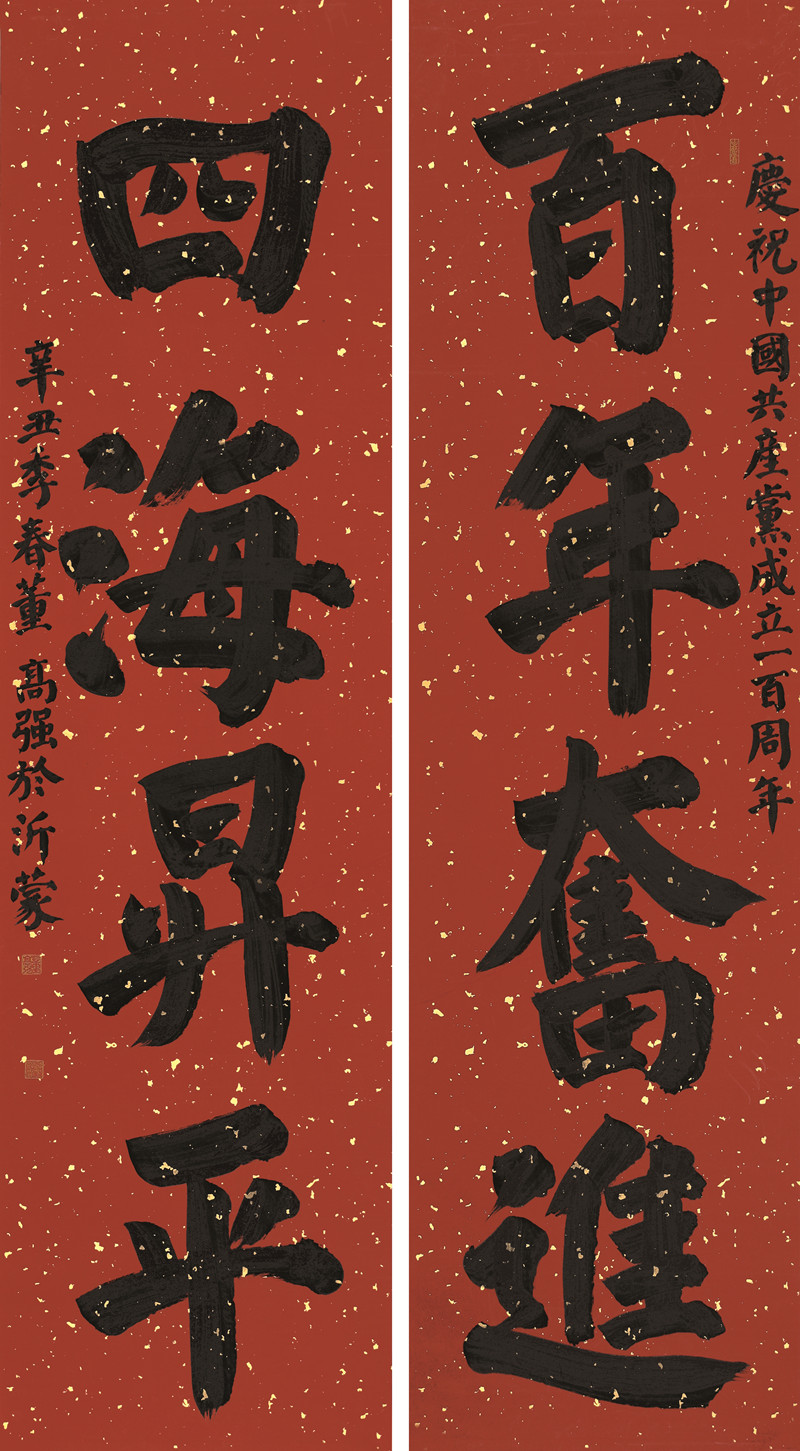 慶祝中國共產黨成立一百周年
百年奮進
四海昇平
辛丑季春董高强於沂蒙